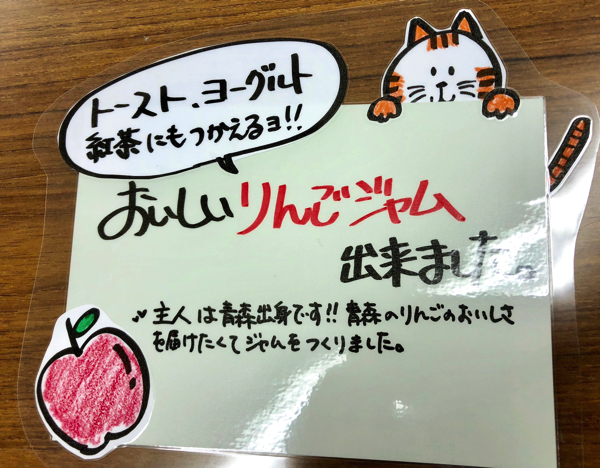 トースト、ヨーグルト
紅茶にもつかえるヨ!!
おいしいりんごジャム
出来ました。
主人は青森出身です!! 青森のりんごのおいしさ
を届けたくてジャムをつくりました。